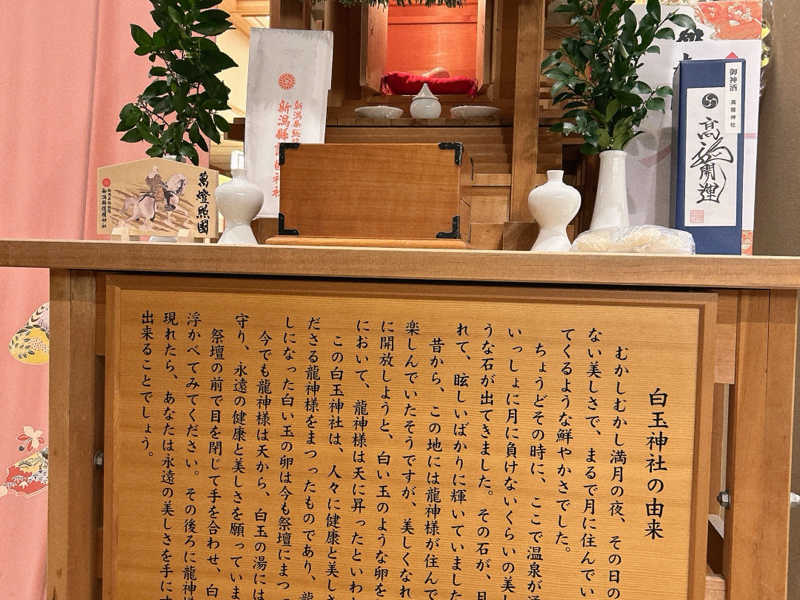 萬燈照國
新潟縣護國神社
御神酒
高龗神社
白玉神社の由来
むかしむかし満月の夜、その日の
ない美しさで、まるで月に住んでい
てくるような鮮やかさでした。
ちょうどその時に、ここで温泉が
いっしょに月に負けないくらいの美し
うな石が出てきました。その石が、月
れて、眩しいばかりに輝いていました
昔から、この地には龍神様が住んで
楽しんでいたそうですが、美しくなれ
に開放しようと、白い玉のような卵を
において、龍神様は天に昇ったといわ
この白玉神社は、人々に健康と美しさ
ださる龍神様をまつったものであり、龍
しになった白い玉の卵は今も祭壇にまつ
今でも龍神様は天から、白玉の湯には
守り、永遠の健康と美しさを願っていま
祭壇の前で目を閉じて手を合わせ、白
浮かべてみてください。その後ろに龍神様
現れたら、あなたは永遠の美しさを手にす
出来ることでしょう。